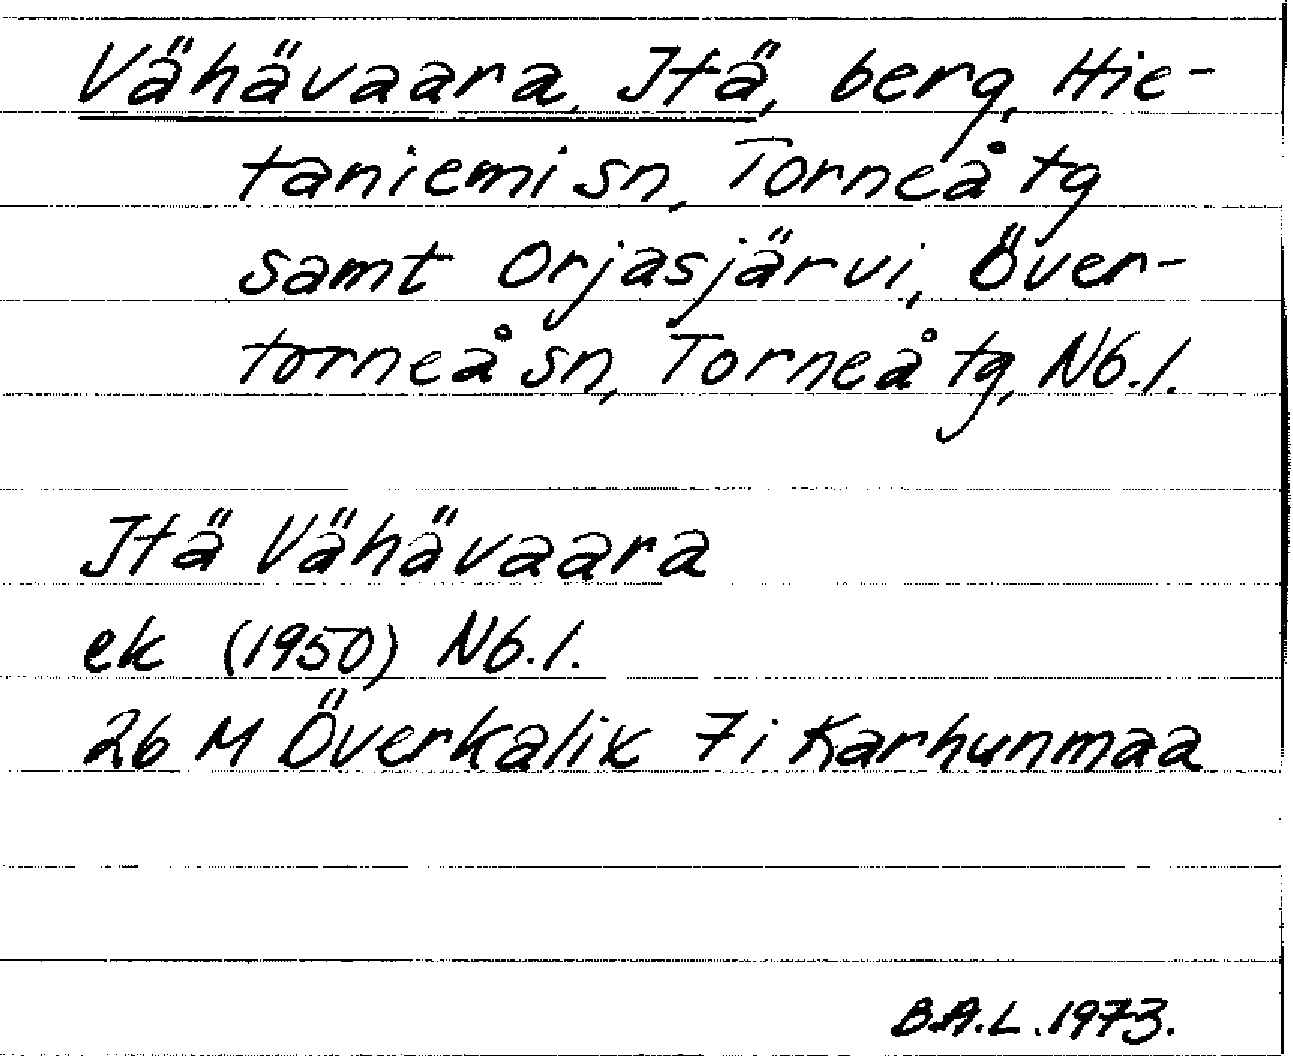 Vähävaara, Itä, berg, Hie-
taniemi sn, Torneå tg
samt Orjasjärvi, Över-
torneå sn, Torneå tg, Nb.l.
Itä Vähävaara
ek (1950) Nb.l.
26 M Överkalix 7i Karhunmaa
B.A.L. 1973.